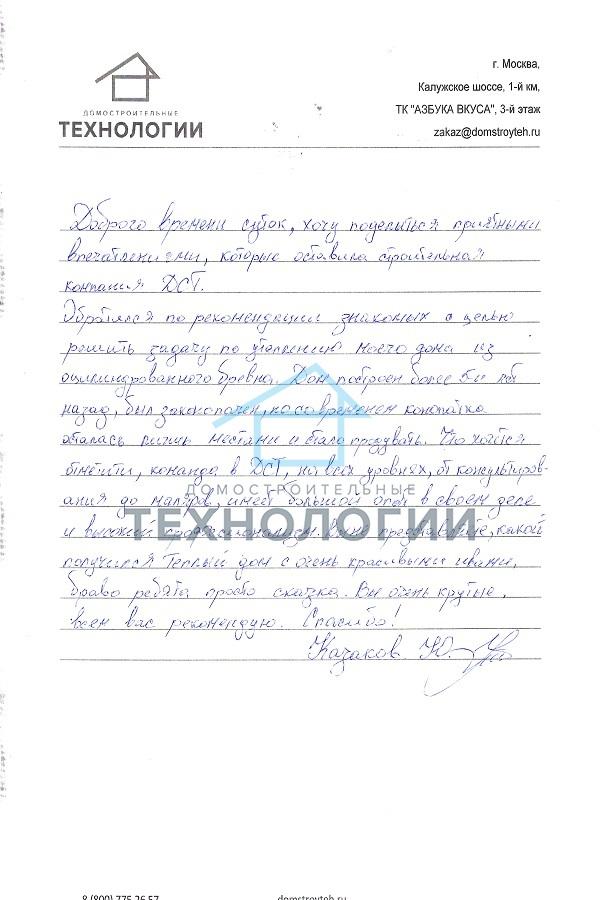 ДОМОСТРОИТЕЛЬНЫЕ
ТЕХНОЛОГИИ
г. Москва,
Калужское шоссе, 1-й км,
ТК "АЗБУКА ВКУСА", 3-й этаж
zakaz@domstroyteh.ru
Доброго времени суток, хочу поделиться приятными
впечатлениями, которые оставила строительная
компания ДСТ.
Обратился по рекомендации знакомых с целью
решить задачу по утеплению моего дома из
оцилиндрованного бревна. Дом построен более 5-и лет
назад, был законопачен, но со временем конопатка
осталась лишь местами и стало продувать. Что хочется
отметить, команда в ДСТ, на всех уровнях, от консультиров-
ания до маляров, имеет большой опыт в своем деле
и высокий профессионализм. представление, какой
получился теплый дом с очень красивыми швами,
браво ребята просто сказка. Вы очень крутые,
всем вас рекомендую. Спасибо!
Казаков Ю.
ДОМОСТРОИТЕЛЬНЫЕ
ТЕХНОЛОГИИ
8 (800) 775 26 57
domstroyteh.ru